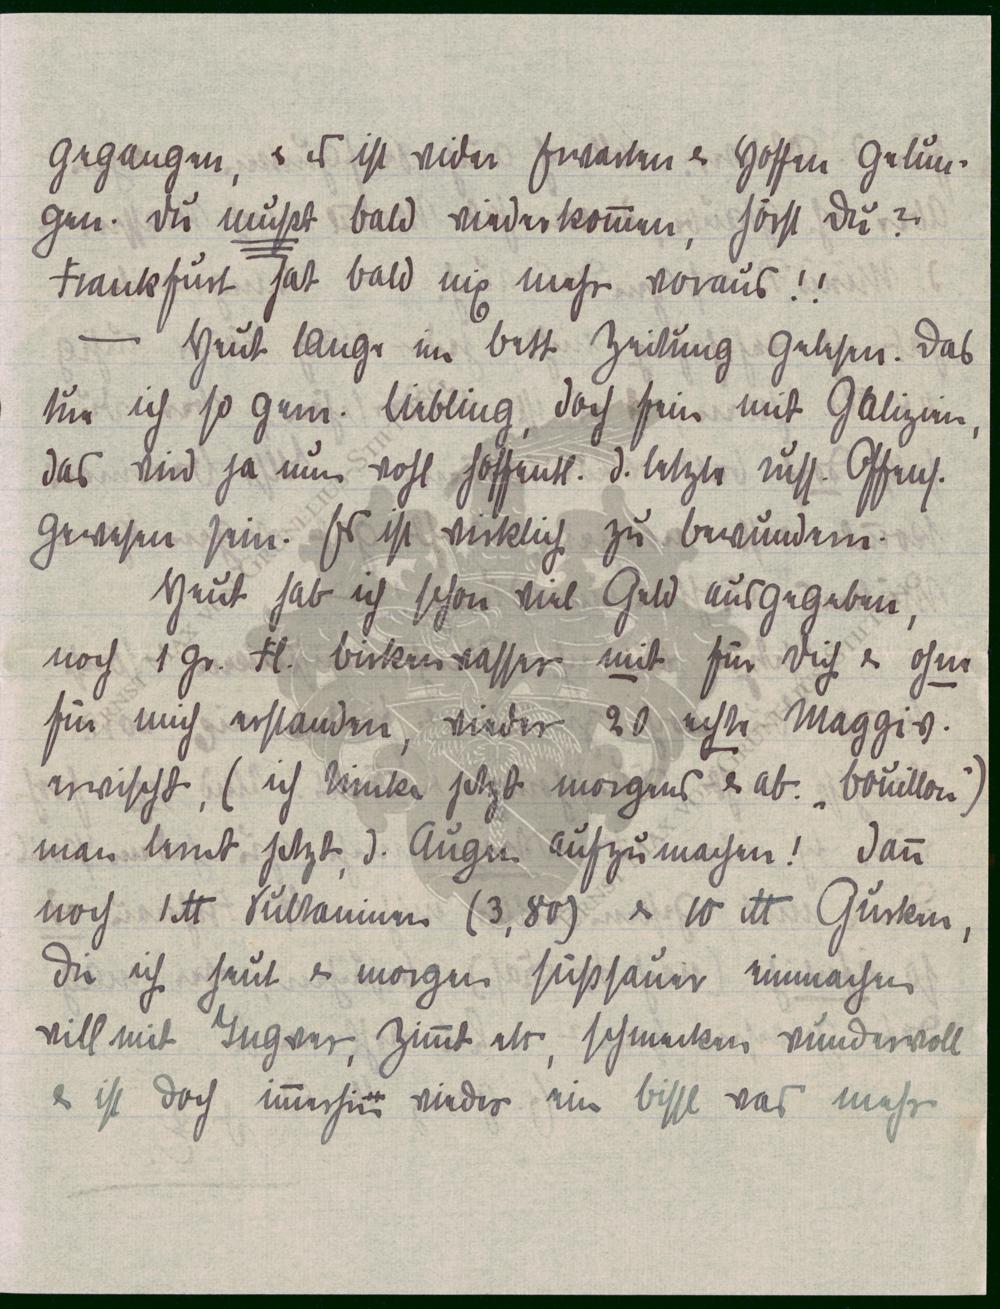 gegangen, & es ist wider Erwarten & Hoffen gelun-
gen. Du mußt bald wiederkom̄en, hörst Du?
Frankfurt hat bald nix mehr voraus!!
— Heut lange im Bett Zeitung gelesen. Das
tue ich so gern. Liebling, doch fein mit Galizien,
das wird ja nun wohl hoffentl. d. letzte russ. Offens.
gewesen sein. Es ist wirklich zu bewundern.
Heut hab ich schon viel Geld ausgegeben,
noch 1 gr. Fl. Birkenwasser mit für Dich & ohne
für mich erstanden, wieder 20 echte Maggiw.
erwischt, (ich trinke jetzt morgens & ab. „Bouillon“)
man lernt jetzt, d. Augen aufzumachen! Dan̄
noch 1 ℔ Sultaninen (3,80) & 10 ℔ Gurken,
die ich heut & morgen süßsauer einmachen
will mit Ingwer, Zim̄t etc, schmecken wundervoll
& ist doch im̄erhin wieder ein bissl was mehr